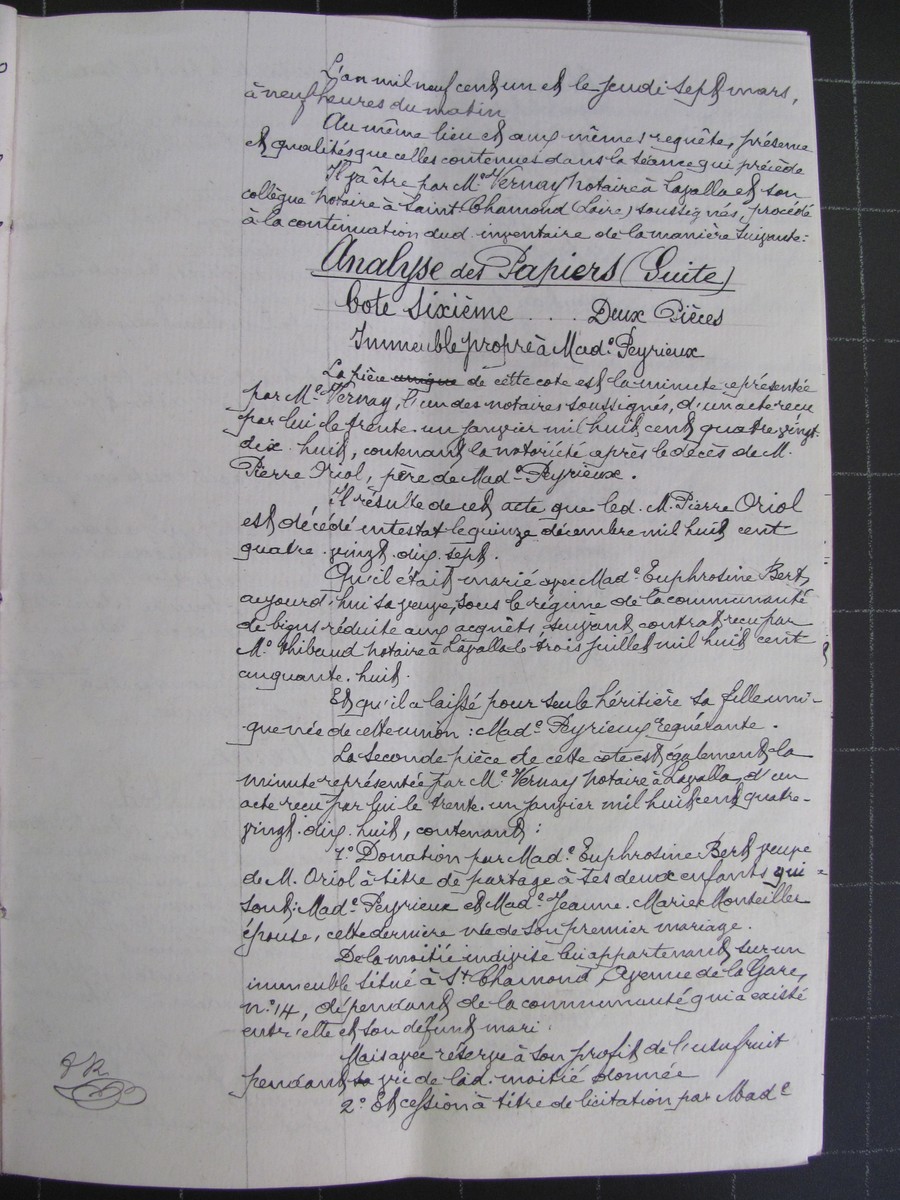 L'an mil neuf cent un et le jeudi sept mars,
à neuf heures du matin
Au même lieu et aux mêmes requête, présence
et qualités que celles contenues dans la séance qui précède
Il va être par Me Vernay notaire à Lavalla et son
collègue notaire à Saint-Chamond (Loire) soussignés, procédé
à la continuation dud. inventaire de la manière suivante:
Analyse des Papiers (Suite)
Cote Sixième . . . Deux Pièces
Immeuble propre à Made Peyrieux
La pièce unique de cette cote est la minute représentée
par Me Vernay, l'un des notaires soussignés, d'un acte reçu
par lui le trente-un janvier mil huit cent quatre-vingt-
dix-huit, contenant la notoriété après le décès de M.
Pierre Oriol, père de Made Peyrieux.
Il résulte de cet acte que led. M. Pierre Oriol
est décédé intestat le quinze décembre mil huit cent
quatre-vingt-dix-sept.
Qu'il était marié avec Made Euphrosine Bert,
aujourd'hui sa veuve, sous le régime de la communauté
de biens réduite aux acquêts, suivant contrat reçu par
Me Thibaud notaire à Lavalla le trois juillet mil huit cent
cinquante-huit.
Et qu'il a laissé pour seule héritière sa fille uni-
que née de cette union: Made Peyrieux requérante.
La seconde pièce de cette cote est également la
minute représentée par Me Vernay notaire à Lavalla, d'un
acte reçu par lui le trente-un janvier mil huit cent quatre-
vingt-dix-huit, contenant:
1o Donation par Made Euphrosine Bert veuve
de M. Oriol à titre de partage à ses deux enfants qui
sont: Made Peyrieux et Made Jeanne-Marie Monteiller
épouse, cette dernière née de son premier mariage.
De la moitié indivise lui appartenant sur un
immeuble situé à St Chamond, Avenue de la Gare,
no 14, dépendant de la communauté qui a existé
entr'elle et son défunt mari.
Mais avec réserve à son profit de l'usufruit
pendant sa vie de lad. moitié donnée
2o Et cession à titre de licitation par Made